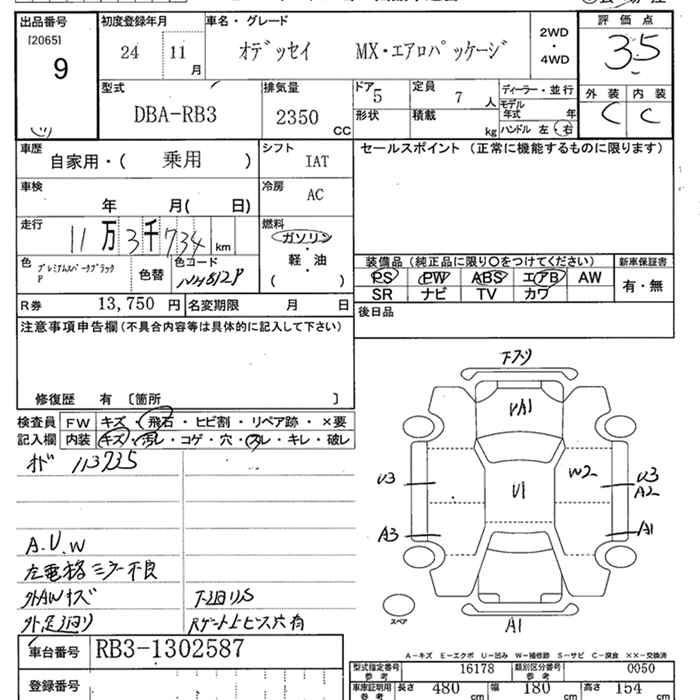 出品番号
[2065]
9
初度登録年月
24 11 月
車名・グレード
オデッセイ MX・エアロパッケージ
2WD
・
4WD
評価点
3.5
外装 内装
C C
型式
DBA-RB3
排気量
2350 CC
ドア 5
形状
定員 7 人
積載 kg
ディーラー・並行
モデル
年式 年
ハンドル 左・右
車歴
自家用・( 乗用 )
シフト
IAT
車検
年 月( 日)
冷房
AC
走行
11 万 3 千 734 km
燃料
ガソリン
・
軽・油
( )
色 プレミアムスパークブラックP
色替
色コード
NH812P
R券 13,750 円
名変期限 月 日
セールスポイント (正常に機能するものに限ります)
装備品 (純正品に限り○をつけてください)
PS PW ABS エアB AW
SR ナビ TV カワ
新車保証書
有・無
後日品
注意事項申告欄(不具合内容等は具体的に記入して下さい)
修復歴 有 〔箇所 〕
検査員
記入欄
FW キズ・飛石・ヒビ割・リペア跡・×要
内装 キズ・汚レ・コゲ・穴・スレ・キレ・破レ
113735
A.U.W
左電格ミラー不良
外AWキズ
車台番号 RB3-1302587
登録番号
UA1
U3
U1
W2
U3
A2
A3
A1
A1
スペア
A-キズ E-エクボ U-凹み W-補修跡 S-サビ C-腐食 ××-交換済
型式指定番号
参考
16178
類別区分番号
参考
0050
車庫証明用
参考
長さ 480 幅 180 高さ 154